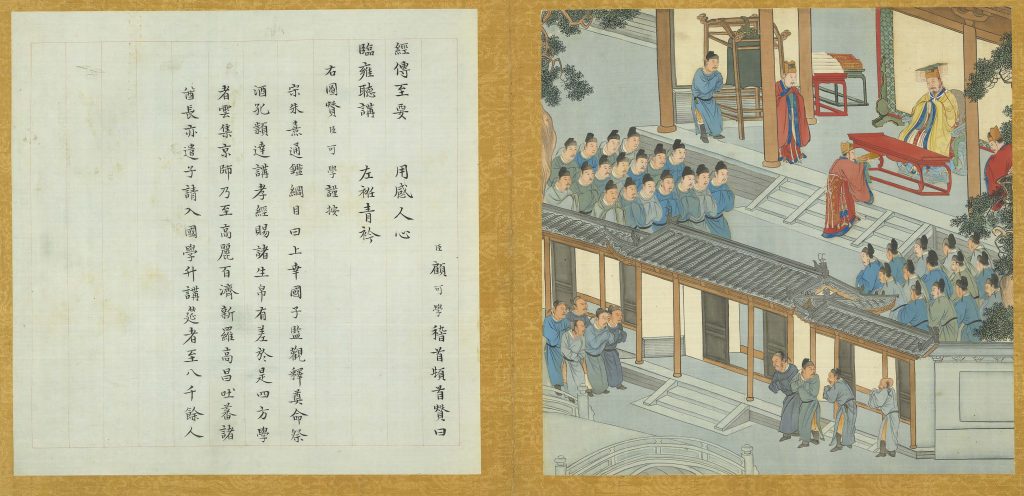 臣顧可學稽首頓首贊曰
經傳至要 用感人心
臨雍聽講 左衽青衿
右圖贊臣可學謹按
宋朱熹通鑑綱目曰上幸國子監觀釋奠命祭
酒孔穎達講孝經賜諸生帛有差於是四方學
者雲集京師乃至高麗百濟新羅高昌吐蕃諸
酋長亦遣子請入國學升講筵者至八千餘人